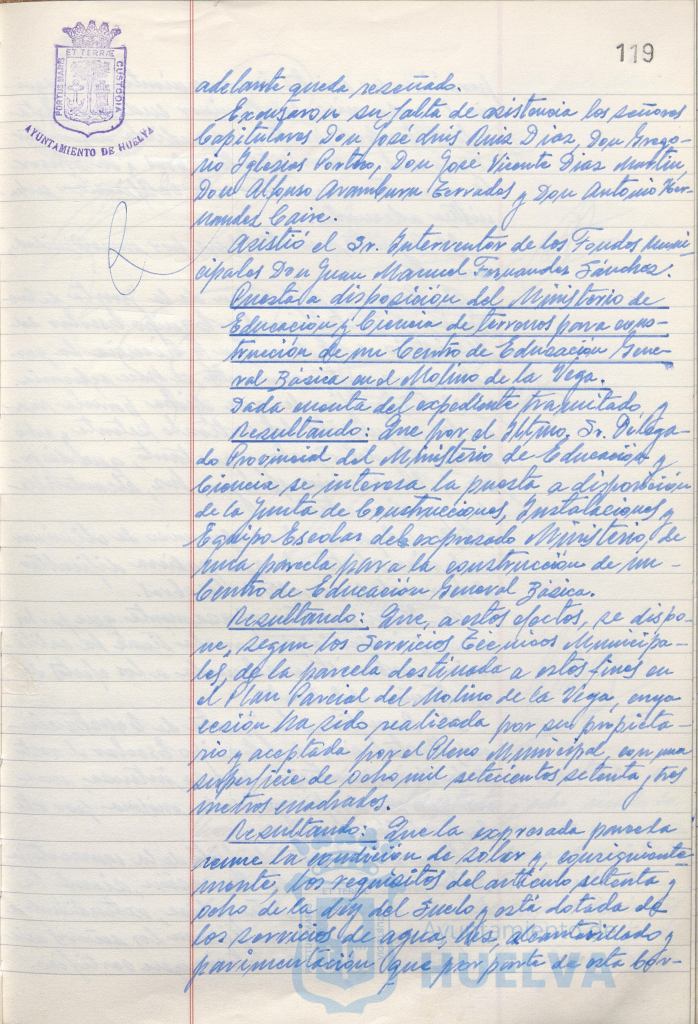 119
PORTUS MARIS ET TERRÆ CUSTODIA
AYUNTAMIENTO DE HUELVA
adelante queda reseñado.
Excusaron su falta de asistencia los señores
Capitulares Don José Luis Ruiz Diaz, Don Grego-
rio Iglesias Portho, Don José Vicente Diaz Martin,
Don Alfonso Aramburu Terrados y Don Antonio Her-
nandez Caire.
Asistió el Sr. Interventor de los Fondos Muni-
cipales Don Juan Manuel Fernandez Sánchez.
Puesta a disposición del Ministerio de
Educación y Ciencia de terrenos para cons-
trucción de un Centro de Educación Gene-
ral Básica en el Molino de la Vega.
Dada cuenta del expediente tramitado, y
Resultando: Que por el Iltmo. Sr. Delega-
do Provincial del Ministerio de Educación y
Ciencia se interesa la puesta a disposición
de la Junta de Construcciones, Instalaciones y
Equipo Escolar del expresado Ministerio, de
una parcela para la construcción de un
Centro de Educación General Básica.
Resultando: Que, a estos efectos, se dispo-
ne, segun los Servicios Técnicos Municipa-
les, de la parcela destinada a estos fines en
el Plan Parcial del Molino de la Vega, cuya
cesión ha sido realizada por su propieta-
rio y aceptada por el Pleno Municipal, con una
superficie de ocho mil setecientos setenta y tres
metros cuadrados.
Resultando: Que la expresada parcela
reune la condición de solar y, consiguiente-
mente, los requisitos del artículo setenta y
ocho de la Ley del Suelo y está dotada de
los servicios de agua, luz, alcantarillado y
pavimentación que por parte de esta Cor-
Ayuntamiento de
HUELVA